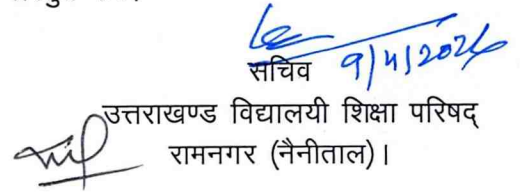 सचिव 9/4/2026
उत्तराखण्ड विद्यालयी शिक्षा परिषद्
रामनगर (नैनीताल)।